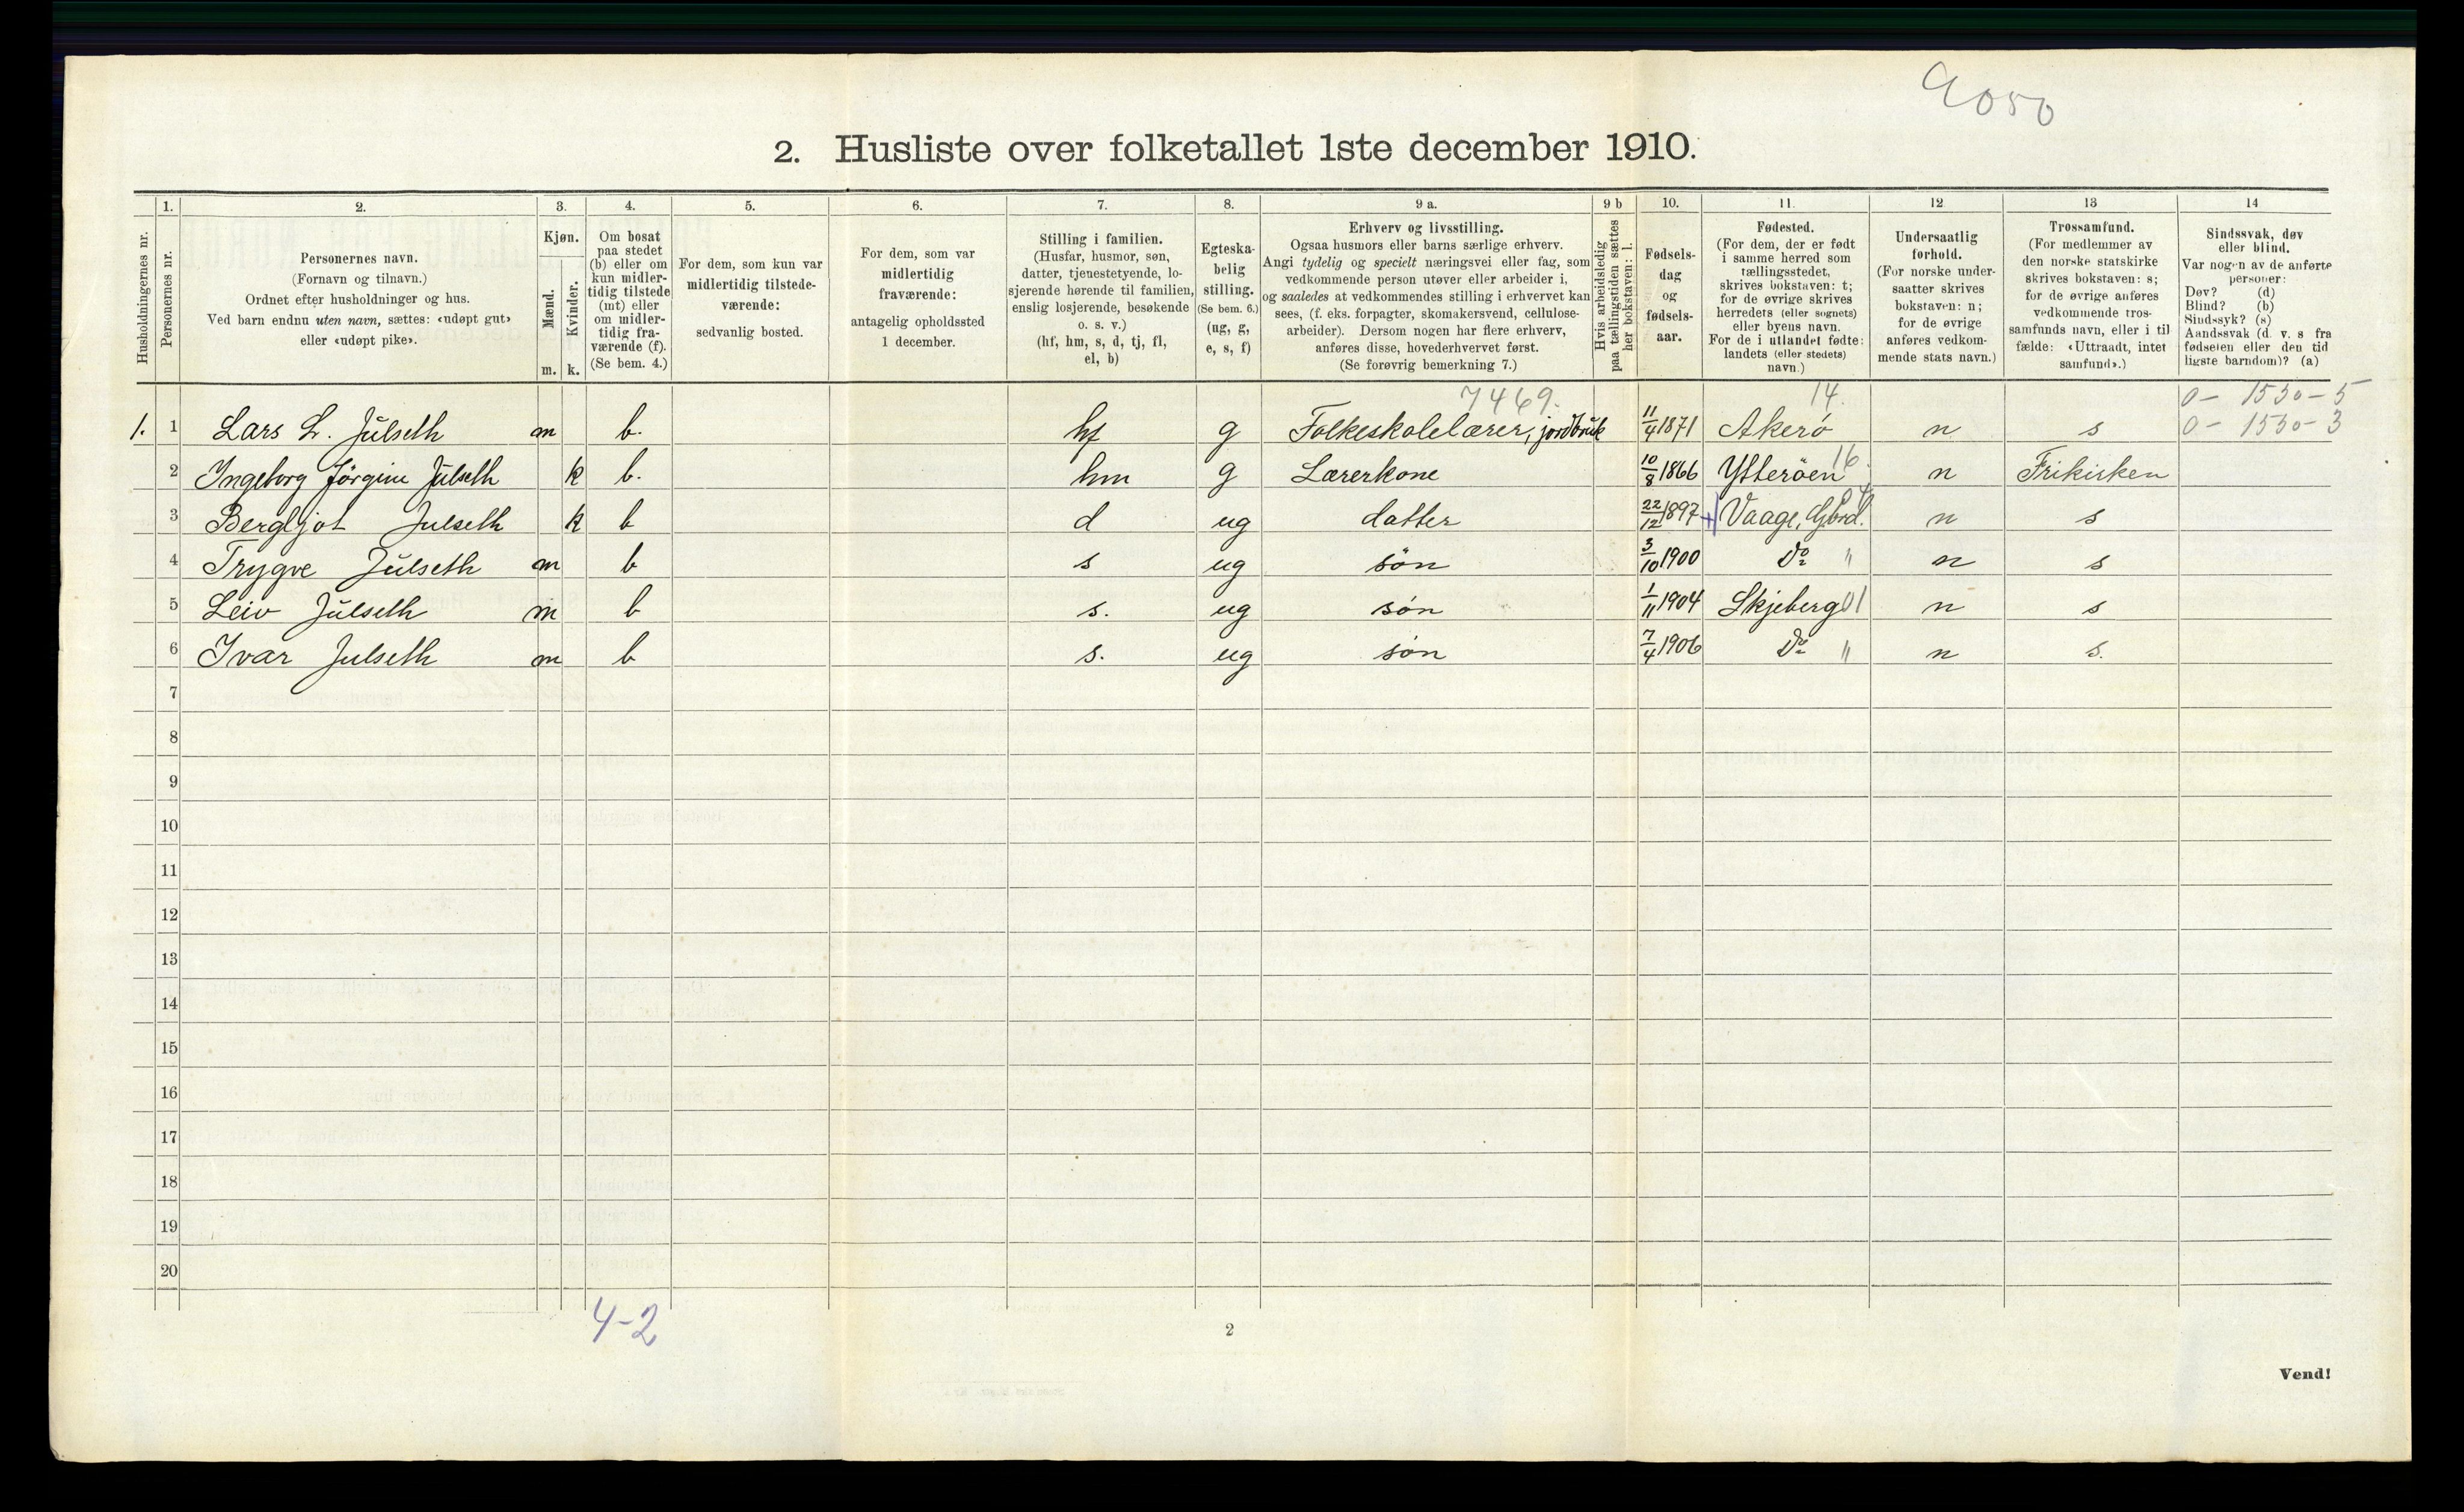 9050
2. Husliste over folketallet 1ste december 1910.
Husholdningernes nr.
1. Personernes nr.
2. Personernes navn.
(Fornavn og tilnavn.)
Ordnet efter husholdninger og hus.
Ved barn endnu uten navn, sættes: «udøpt gut»
eller «udøpt pike».
3. Kjøn.
Mænd. Kvinder.
m. k.
4. Om bosat
paa stedet
(b) eller om
kun midler-
tidig tilstede
(mt) eller
om midler-
tidig fra-
værende (f).
(Se bem. 4.)
5. For dem, som kun var
midlertidig tilstede-
værende:
sedvanlig bosted.
6. For dem, som var
midlertidig
fraværende:
antagelig opholdssted
1 december.
7. Stilling i familien.
(Husfar, husmor, søn,
datter, tjenestetyende, lo-
sjerende hørende til familien,
enslig losjerende, besøkende
o. s. v.)
(hf, hm, s, d, tj, fl,
el, b)
8. Egteska-
belig
stilling.
(Se bem. 6.)
(ug, g,
e, s, f)
9 a. Erhverv og livsstilling.
Ogsaa husmors eller barns særlige erhverv.
Angi tydelig og specielt næringsvei eller fag, som
vedkommende person utøver eller arbeider i,
og saaledes at vedkommendes stilling i erhvervet kan
sees, (f. eks. forpagter, skomakersvend, cellulose-
arbeider). Dersom nogen har flere erhverv,
anføres disse, hovederhvervet først.
(Se forøvrig bemerkning 7.)
9 b Hvis arbeidsledig
paa tællingstiden sættes
her bokstaven: l.
10. Fødsels-
dag
og
fødsels-
aar.
11. Fødested.
(For dem, der er født
i samme herred som
tællingsstedet,
skrives bokstaven: t;
for de øvrige skrives
herredets (eller sognets)
eller byens navn.
For de i utlandet fødte:
landets (eller stedets)
navn.)
12 Undersaatlig
forhold.
(For norske under-
saatter skrives
bokstaven: n;
for de øvrige
anføres vedkom-
mende stats navn.)
13 Trossamfund.
(For medlemmer av
den norske statskirke
skrives bokstaven: s;
for de øvrige anføres
vedkommende tros-
samfunds navn, eller i til-
fælde: «Uttraadt, intet
samfund».)
14 Sindssvak, døv
eller blind.
Var nogen av de anførte
personer:
Døv? (d)
Blind? (b)
Sindssyk? (s)
Aandssvak (d. v. s fra
fødselen eller den tid
ligste barndom)? (a)
7469. 14. 0 - 1530 - 5
1. 1 Lars L. Julseth m b. hf g Folkeskolelærer, jordbruk 11/4 1871 Akerö n s 0 - 1530 - 3
2 Ingeborg Jörgine Julseth k b. hm g Lærerkone 10/8 1866 Ytteröen 16. n Frikirken
3 Bergljot Julseth k b d ug datter 22/12 1897 Vaage, Gbrd. 04 n s
4 Trygve Julseth m b s ug søn 3/10 1900 Do " n s
5 Leiv Julseth m b s. ug søn 1/11 1904 Skjeberg 01 n s
6 Ivar Julseth m b s. ug søn 7/4 1906 Do " n s.
7
8
9
10
11
12
13
14
15
16
17
18
19
20
4-2
2
Vend!